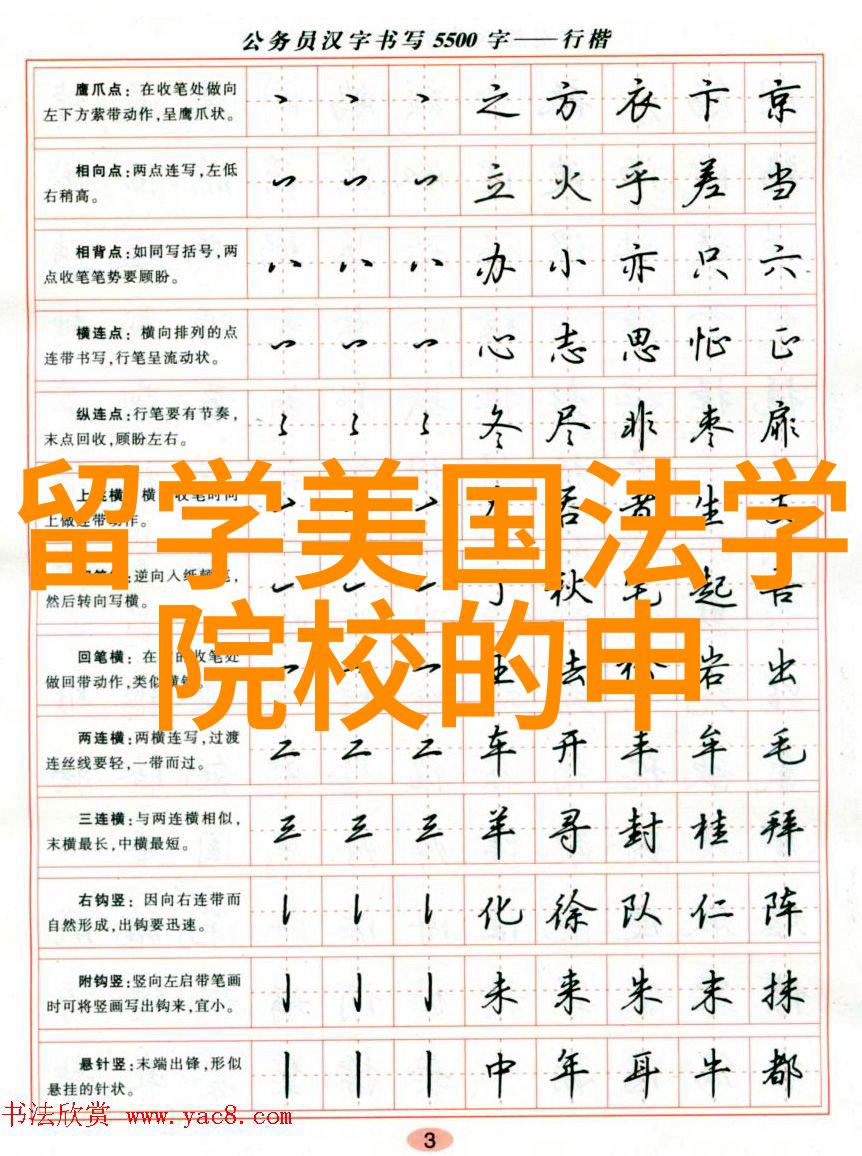 公务员汉字书写5500字——行楷
鹰爪点：在收笔处做向
左下方萦带动作，呈鹰爪状。
丶 丶 丶 之 方 衣 卞 京
相向点：两点连写，左低
右稍高。
立 火 乎 差 当
相背点：如同写括号，两
点收笔笔势要顾盼。
八 八 八 办 小 亦 只 六
横连点：横向排列的点
连带书写，行笔呈流动状。
心 志 思 怔 正
纵连点：行笔要有节奏，
末点回收，顾盼左右。
冬 尽 非 枣 扉
上连横：横 收笔时向
上做连带动作。
吞 首 生 去
逆向入纸
然后转向写横。
秋 宅 起 舌
留学美国法学
院校的申
回笔横：在 收笔处
做回带动作，类似横钩。
王 去 岩 出
两连横：两横连写，过渡
连丝线要轻，一带而过。
二 二 二 车 开 丰 牟 毛
三连横：与两连横相似，
末横最长，中横最短。
三 三 三 羊 寻 封 桂 拜
右钩竖：因向右连带而
自然形成，出钩要迅速。
化 徐 队 仁 阵
附钩竖：竖向左启带笔画
时可将竖画写出钩来，宜小。
亅 亅 亅 未 来 朱 末 抹
悬针竖：末端出锋，形似
悬挂的针状。
丨 丨 丨 中 年 耳 牛 都
书法欣赏 www.yac8.com
3